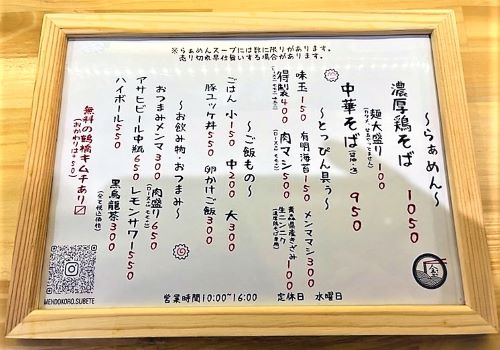 ※らぁめんスープには数に限りがあります。
売り切れ早仕舞いする場合があります。
～らぁめん～
濃厚鶏そば 1050
麺大盛り100
中華そば 950
～とっぴん具ぅ～
味玉150 有明海苔150 メンママシ300
特製400 肉マシ500 青森県産きざみ生ニンニク100
～ご飯もの～
ごはん 小150 中200 大300
豚ユッケ丼550 卵かけご飯300
～お飲み物・おつまみ～
おつまみメンマ300 肉盛り650
アサヒビール中瓶650 レモンサワー550
ハイボール550 黒烏龍茶300
無料の鶴橋キムチあり
(おかわりは+50)
(全て税込価格)
MENDOKORO.SUBETE
営業時間10:00~16:00 定休日 水曜日